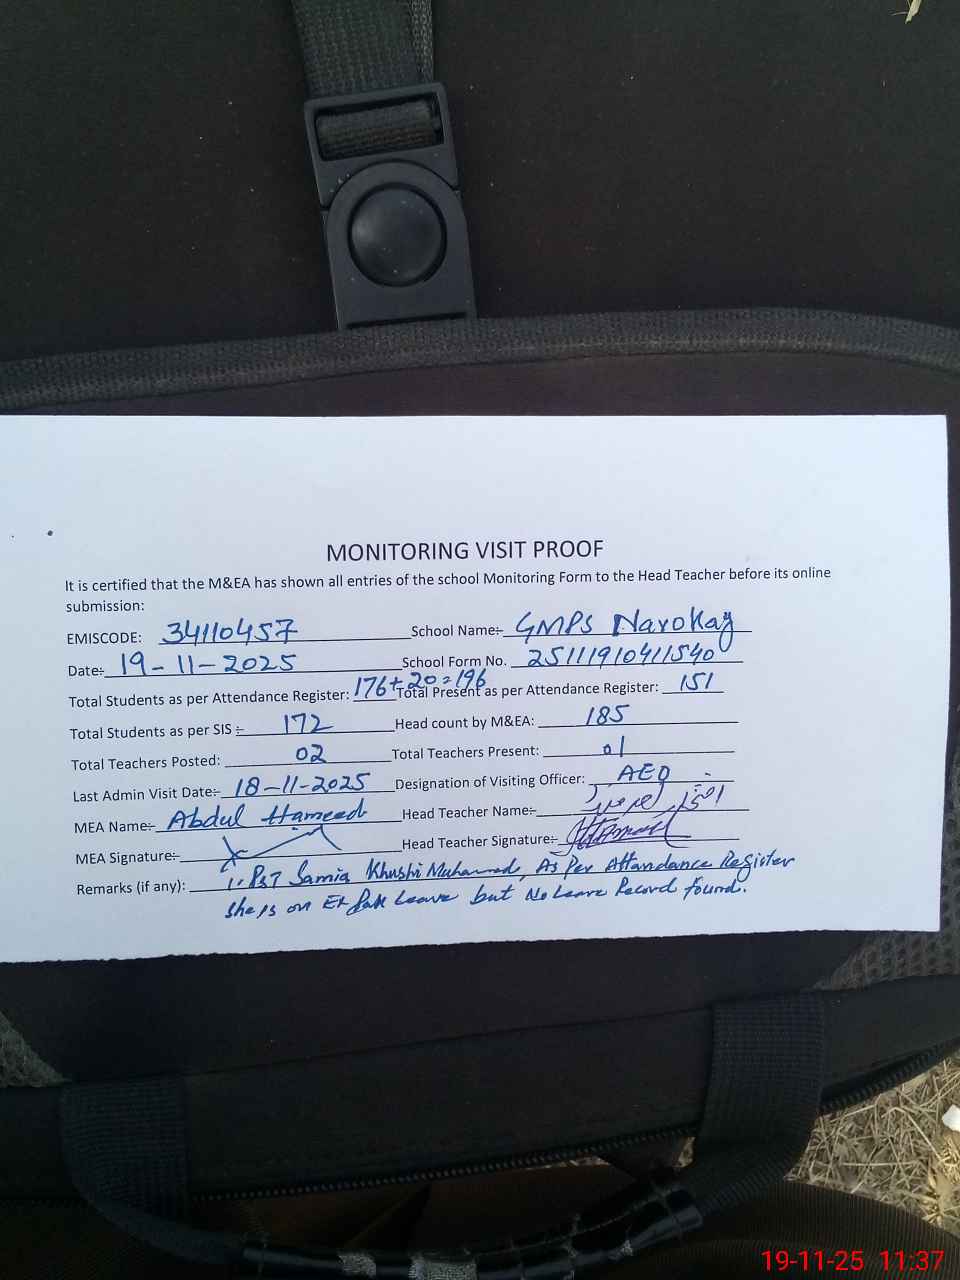 MONITORING VISIT PROOF
It is certified that the M&EA has shown all entries of the school Monitoring Form to the Head Teacher before its online
submission:
EMISCODE: 34110457 School Name:- GMPS Narokay
Date:- 19-11-2025 School Form No. 25111910411540
Total Students as per Attendance Register: 176+20=196 Total Present as per Attendance Register: 151
Total Students as per SIS :- 172 Head count by M&EA: 185
Total Teachers Posted: 02 Total Teachers Present: 01
Last Admin Visit Date:- 18-11-2025 Designation of Visiting Officer: AEO
MEA Name:- Abdul Hameed Head Teacher Name:-
MEA Signature:- Head Teacher Signature:-
Remarks (if any): 1. PST Samia Khushi Muhammad, As Per Attandance Register
She is on Ex Pak Leave but No Leave Record found.
19-11-25 11:37